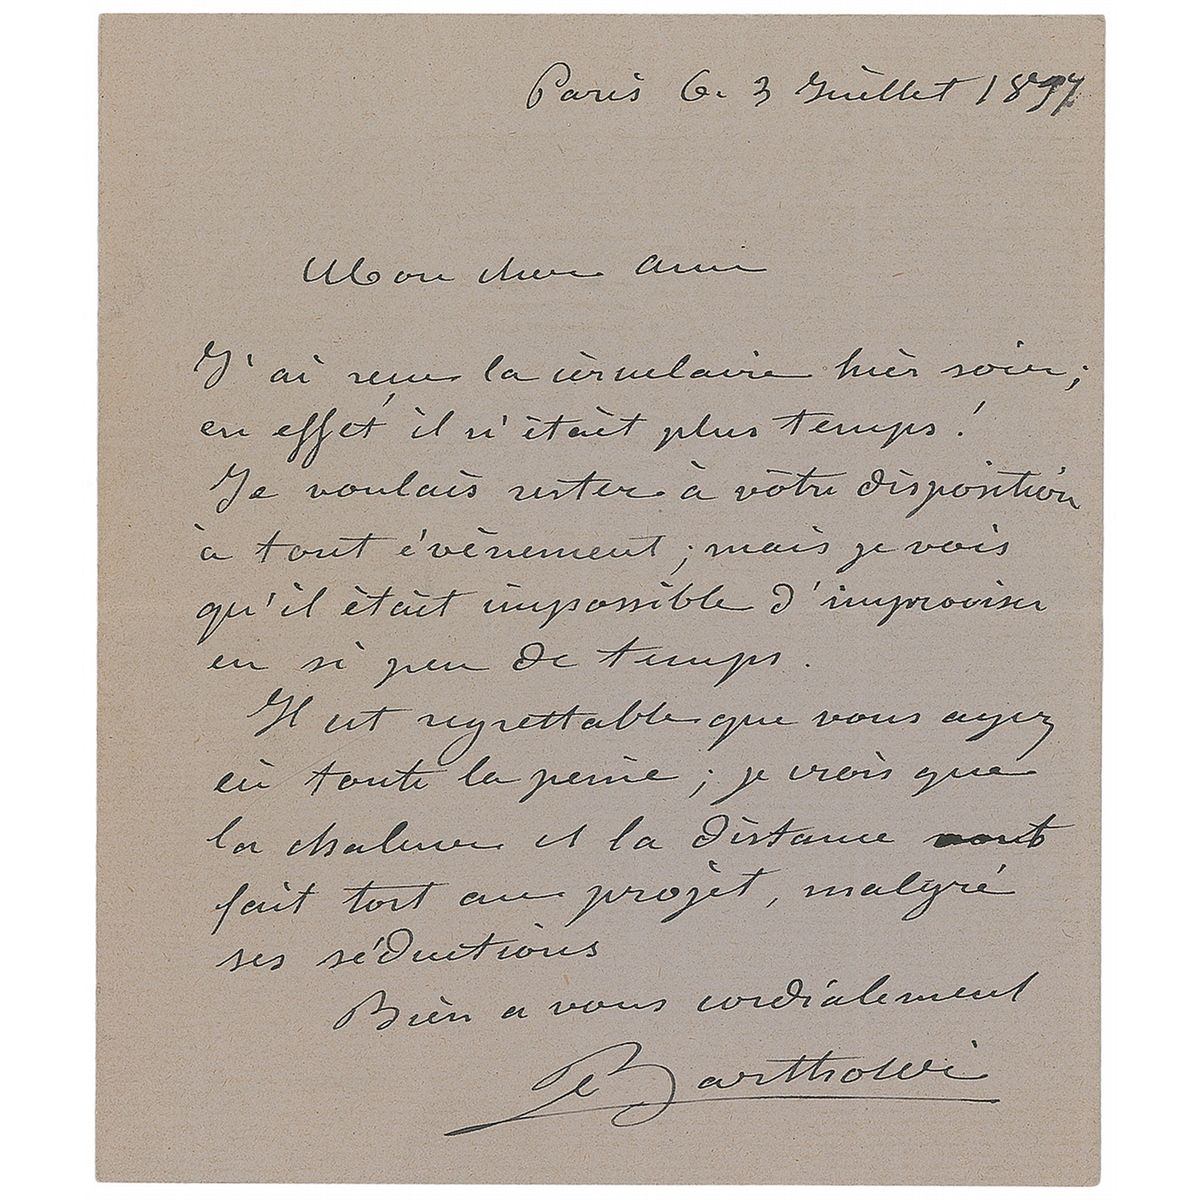 Paris le 3 Juillet 1897
Mon cher ami
J'ai reçu la circulaire hier soir;
en effet il n'était plus temps!
Je voulais rester à votre disposition
à tout évènement; mais je vois
qu'il était impossible d'improviser
en si peu de temps.
Il est regrettable que vous ayez
eu toute la peine; je crois que
la chaleur et la distance ont
fait tort au projet, malgré
ses séductions
Bien a vous cordialement
Bartholdi